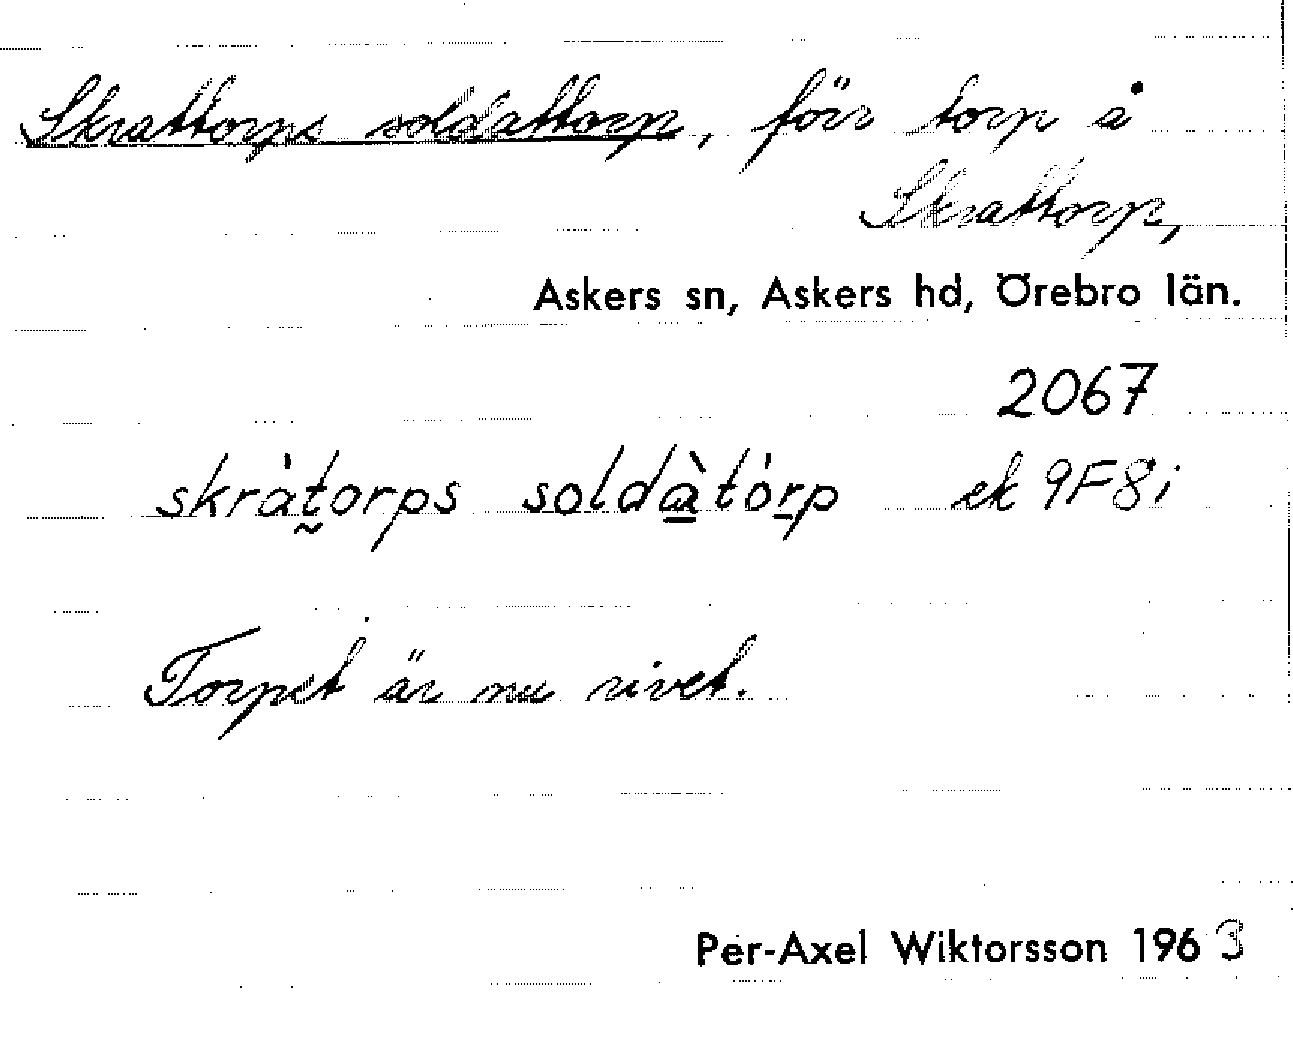 Skrattorps soldattorp, förr torp å
Skrattorp,
Askers sn, Askers hd, Örebro län.
2067
skràt̰orps soldà̲tór̲p ek 9F8i
Torpet är nu rivet.
Per-Axel Wiktorsson 1963